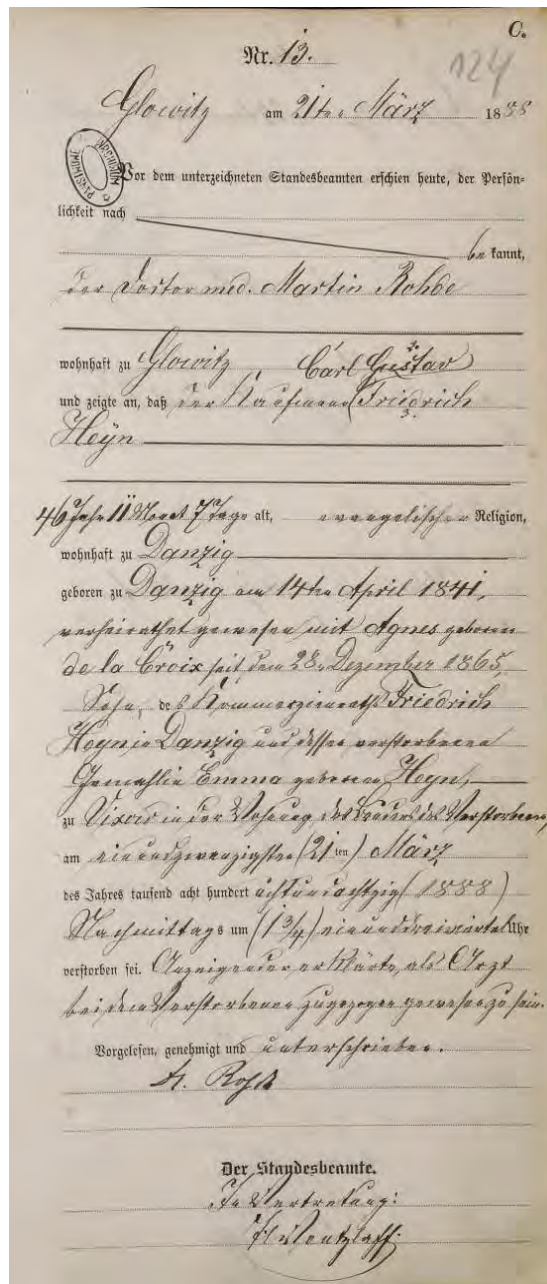 C.
Nr. 13.
124
Glowitz am 21ten März 1888
Vor dem unterzeichneten Standesbeamten erschien heute, der Persön-
lichkeit nach
be kannt,
der Doctor med. Martin Rohde
wohnhaft zu Glowitz Carl Gustav
und zeigte an, daß der Kaufmann Friedrich
Heyn
46 Jahr 11 Monat 7 Tage alt, evangelischer Religion,
wohnhaft zu Danzig
geboren zu Danzig am 14ten April 1841,
verheirathet gewesen mit Agnes geboren
de la Croix seit dem 28. Dezember 1865,
Sohn, des Kommerzienraths Friedrich
Heyn in Danzig und dessen verstorbenen
Gemahlin Emma geborene Heyn,
zu in der Wohnung des Bruders des Verstorbenen,
am einundzwanzigsten (21ten) März
des Jahres tausend acht hundert achtundachtzig (1888)
Nachmittags um (1 3/4) einunddreiviertel Uhr
verstorben sei. Anzeigender erklärte, als Arzt
bei dem Verstorbenen zugezogen gewesen zu sein.
Vorgelesen, genehmigt und unterschrieben.
Dr. Rohde
Der Standesbeamte.
In Vertretung: